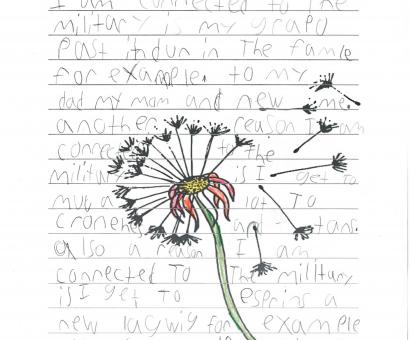 I am connected to the
military is my grapd
past ithdun in The famle
for example. to my
dad my mom and new me.
another reason I am
conne to the
military is I get to
mu a lot To
cronehs and tans.
also a reason I am
connected To The military
is I get To esprins a
new lagwig for example